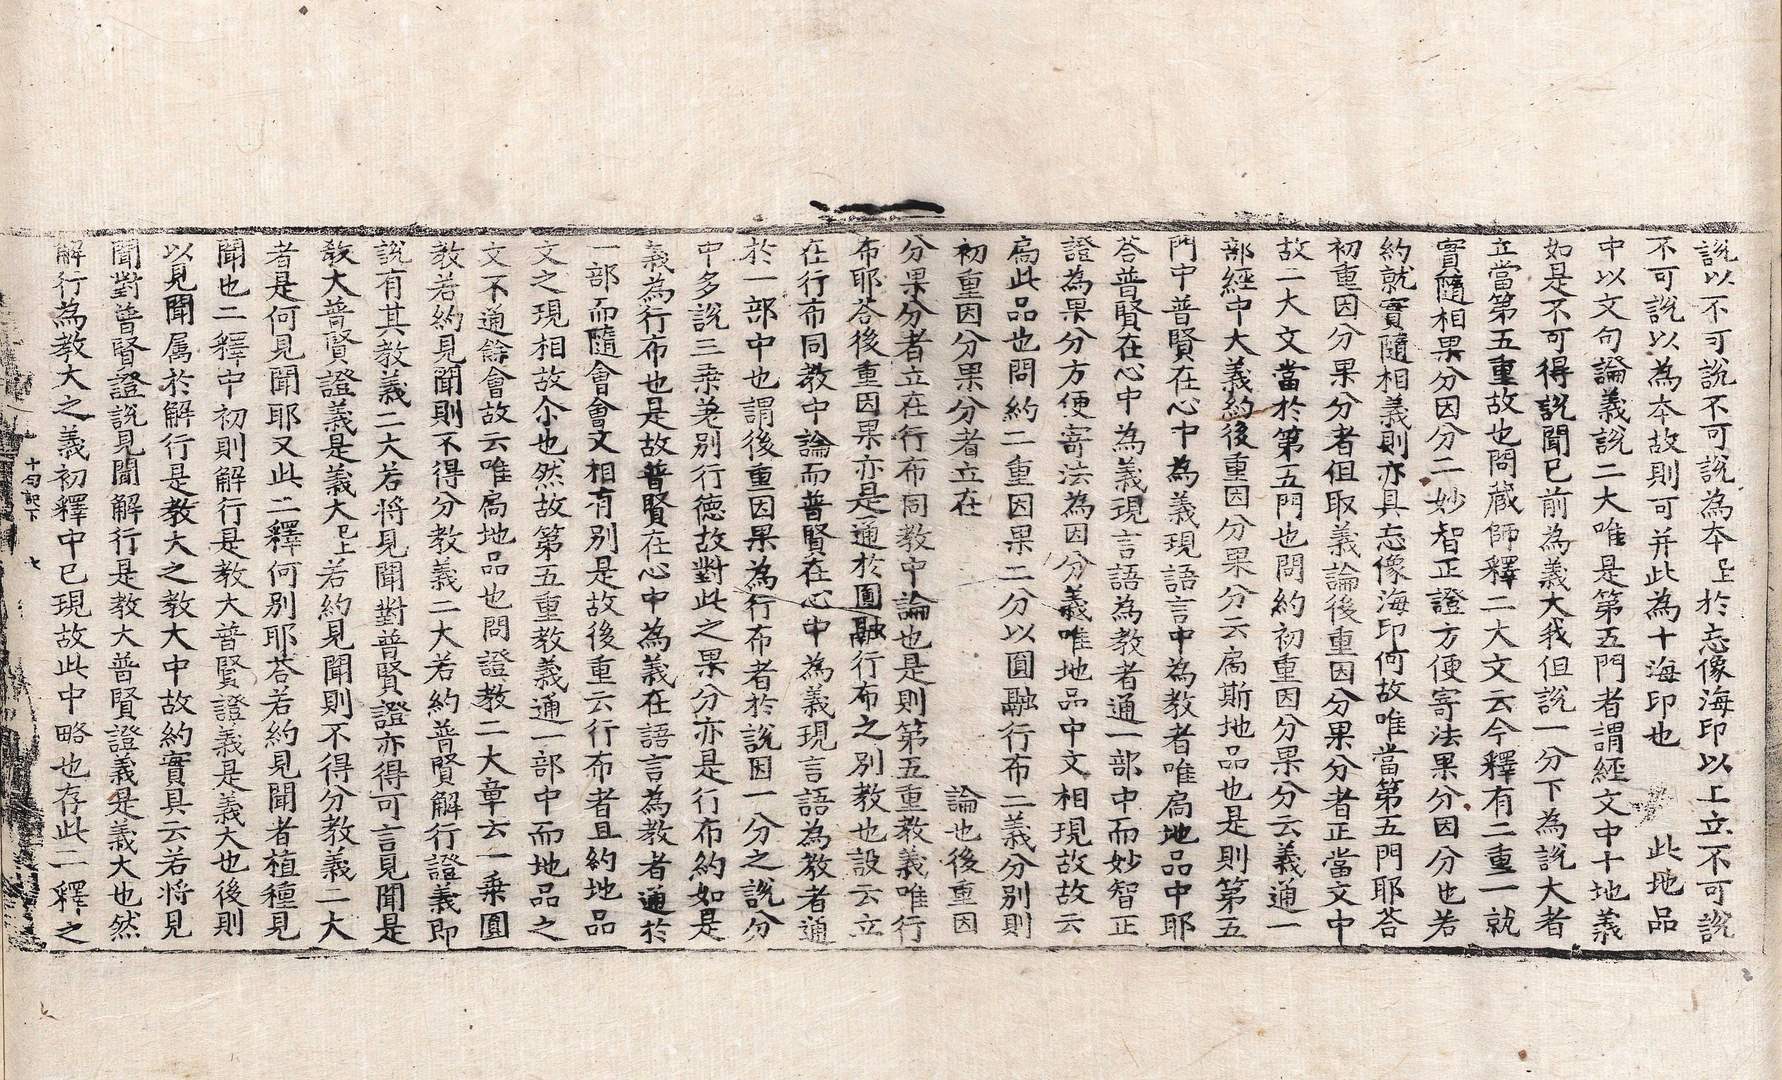 說以不可說不可說爲本已上於忘像海印以上立不可說
不可說以爲本故則可并此爲十海印也　此地品
中以文句論義說二大唯是第五門者謂經文中十地義
如是不可得說聞已前爲義大我但說一分下爲說大者
立當第五重故也問藏師釋二大文云今釋有二重一就
實隨相果分因分二妙智正證方便寄法果分因分也若
約就實隨相義則亦具忘像海印何故唯當第五門耶荅
初重因分果分者但取義論後重因分果分者正當文中
故二大文當於第五門也問約初重因分果分云義通一
部經中大義約後重因分果分云扄斯地品也是則第五
門中普賢在心中爲義現語言中爲教者唯扄地品中耶
荅普賢在心中爲義現言語爲教者通一部中而妙智正
證爲果分方便寄法爲因分義唯地品中文相現故故云
扄此品也問約二重因果二分以圓融行布二義分別則
初重因分果分者立在　論也後重因
分果分者立在行布同教中論也是則第五重教義唯行
布耶荅後重因果亦是通於圓融行布之別教也設云立
在行布同教中論而普賢在心中爲義現言語爲教者通
於一部中也謂後重因果爲行布者於說因一分之說分
中多說三乘差別行德故對此之果分亦是行布約如是
義爲行布也是故普賢在心中爲義在語言爲教者通於
一部而隨會會文相有別是故後重云行布者且約地品
文之現相故尒也然故第五重教義通一部中而地品之
文不通餘會故云唯扄地品也問證教二大章云一乘圓
教若約見聞則不得分教義二大若約普賢解行證義即
說有其教義二大若將見聞對普賢證亦得可言見聞是
教大普賢證義是義大已上若約見聞則不得分教義二大
者是何見聞耶又此二釋何別耶荅若約見聞者植種見
聞也二釋中初則解行是教大普賢證義是義大也後則
以見聞属於解行是教大之教大中故約實具云若將見
聞對普賢證說見聞解行是教大普賢證義是義大也然
解行爲教大之義初釋中已現故此中略也存此一釋之
十句記下　七